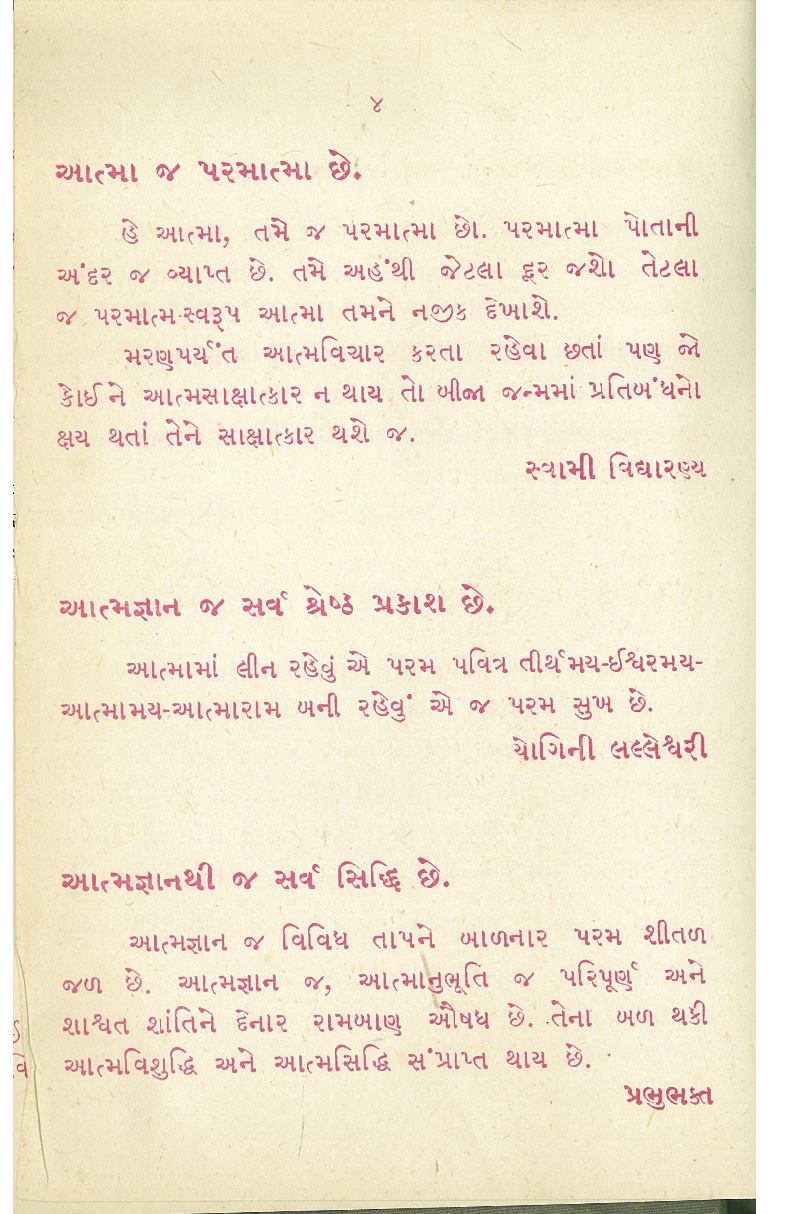 ૪
આત્મા જ પરમાત્મા છે.
હે આત્મા, તમે જ પરમાત્મા છો. પરમાત્મા પોતાની
અંદર જ વ્યાપ્ત છે. તમે અહંથી જેટલા દૂર જશો તેટલા
જ પરમાત્મ-સ્વરૂપ આત્મા તમને નજીક દેખાશે.
મરણપર્યંત આત્મવિચાર કરતા રહેવા છતાં પણ જો
કોઈને આત્મસાક્ષાત્કાર ન થાય તો બીજા જન્મમાં પ્રતિબંધનો
ક્ષય થતાં તેને સાક્ષાત્કાર થશે જ.
સ્વામી વિદ્યારણ્ય
આત્મજ્ઞાન જ સર્વ શ્રેષ્ઠ પ્રકાશ છે.
આત્મામાં લીન રહેવું એ પરમ પવિત્ર તીર્થમય-ઈશ્વરમય-
આત્મામય-આત્મારામ બની રહેવું એ જ પરમ સુખ છે.
યોગિની લલ્લેશ્વરી
આત્મજ્ઞાનથી જ સર્વ સિદ્ધિ છે.
આત્મજ્ઞાન જ વિવિધ તાપને બાળનાર પરમ શીતળ
જળ છે. આત્મજ્ઞાન જ, આત્માનુભૂતિ જ પરિપૂર્ણ અને
શાશ્વત શાંતિને દેનાર રામબાણ ઔષધ છે. તેના બળ થકી
આત્મવિશુદ્ધિ અને આત્મસિદ્ધિ સંપ્રાપ્ત થાય છે.
પ્રભુભક્ત